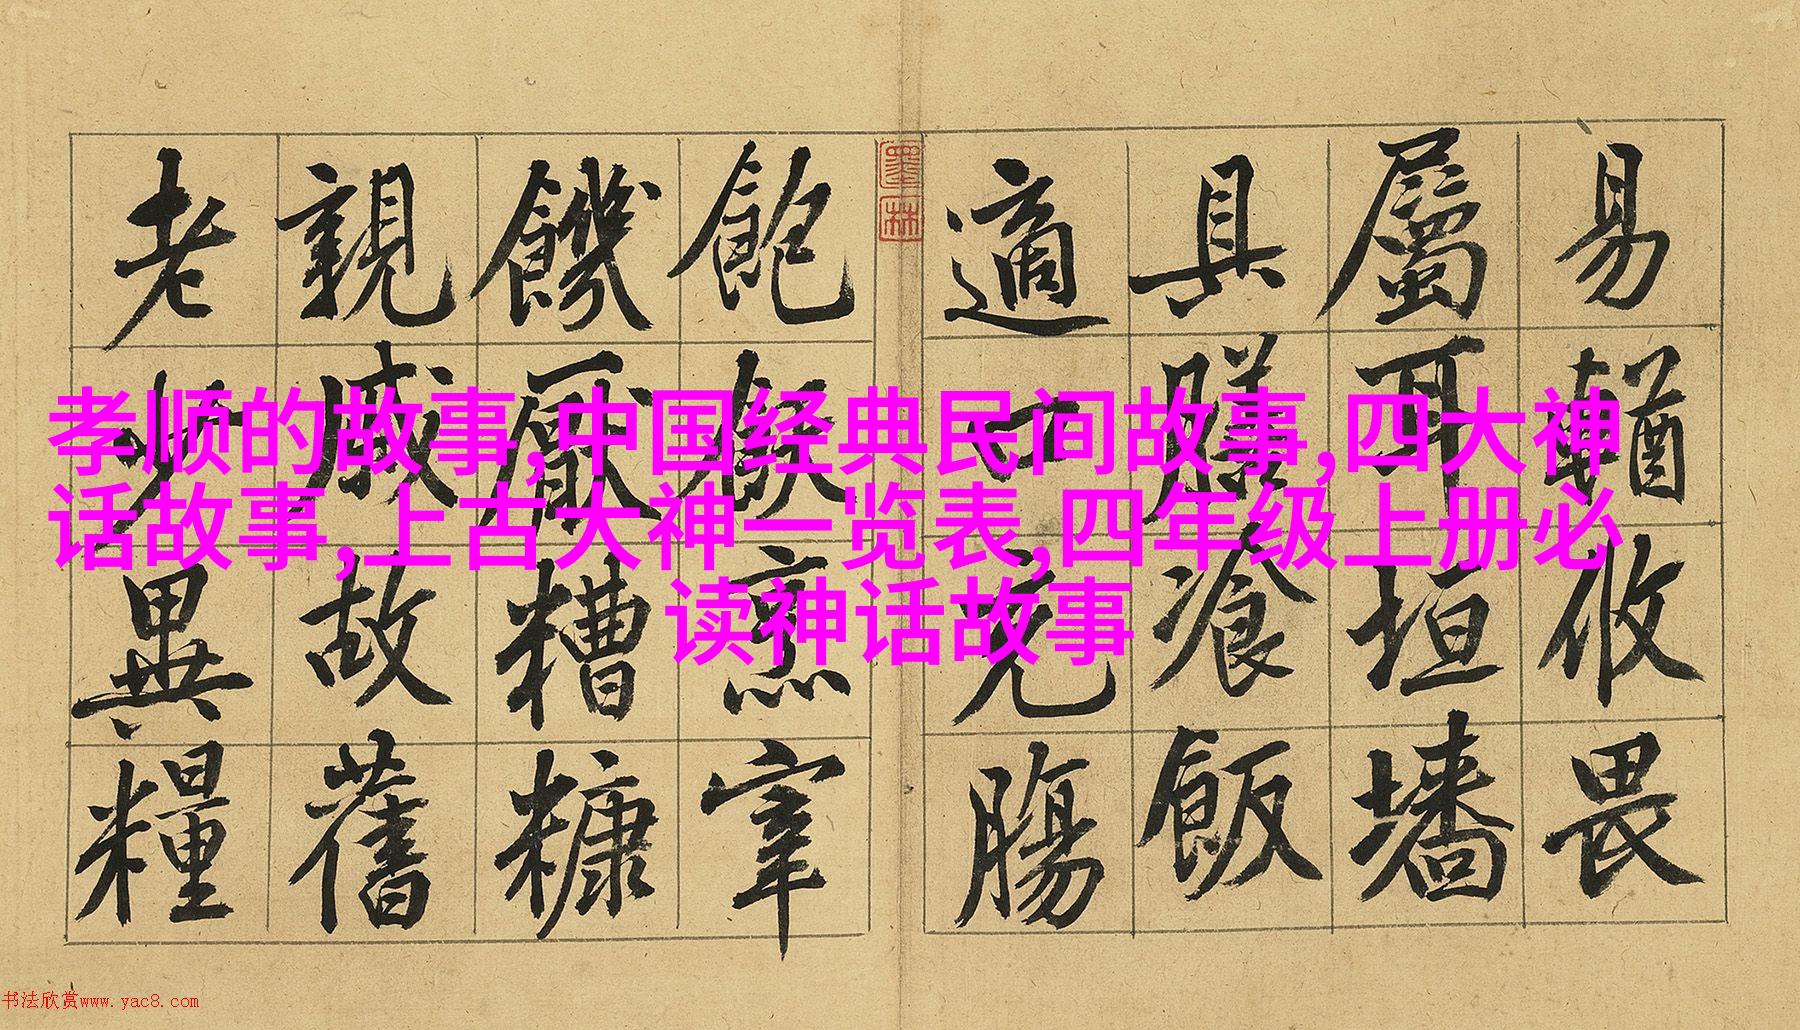 易輶攸畏
屬耳垣墻
具膳湌飯
適口充腸
墨林
飽飫烹宰
饑厭糟糠
親戚故舊
老少異糧
孝顺的故事,中国经典民间故事,四大神
话故事,上古大神一览表,四年级上册必
读神话故事
书法欣赏www.yac8.com